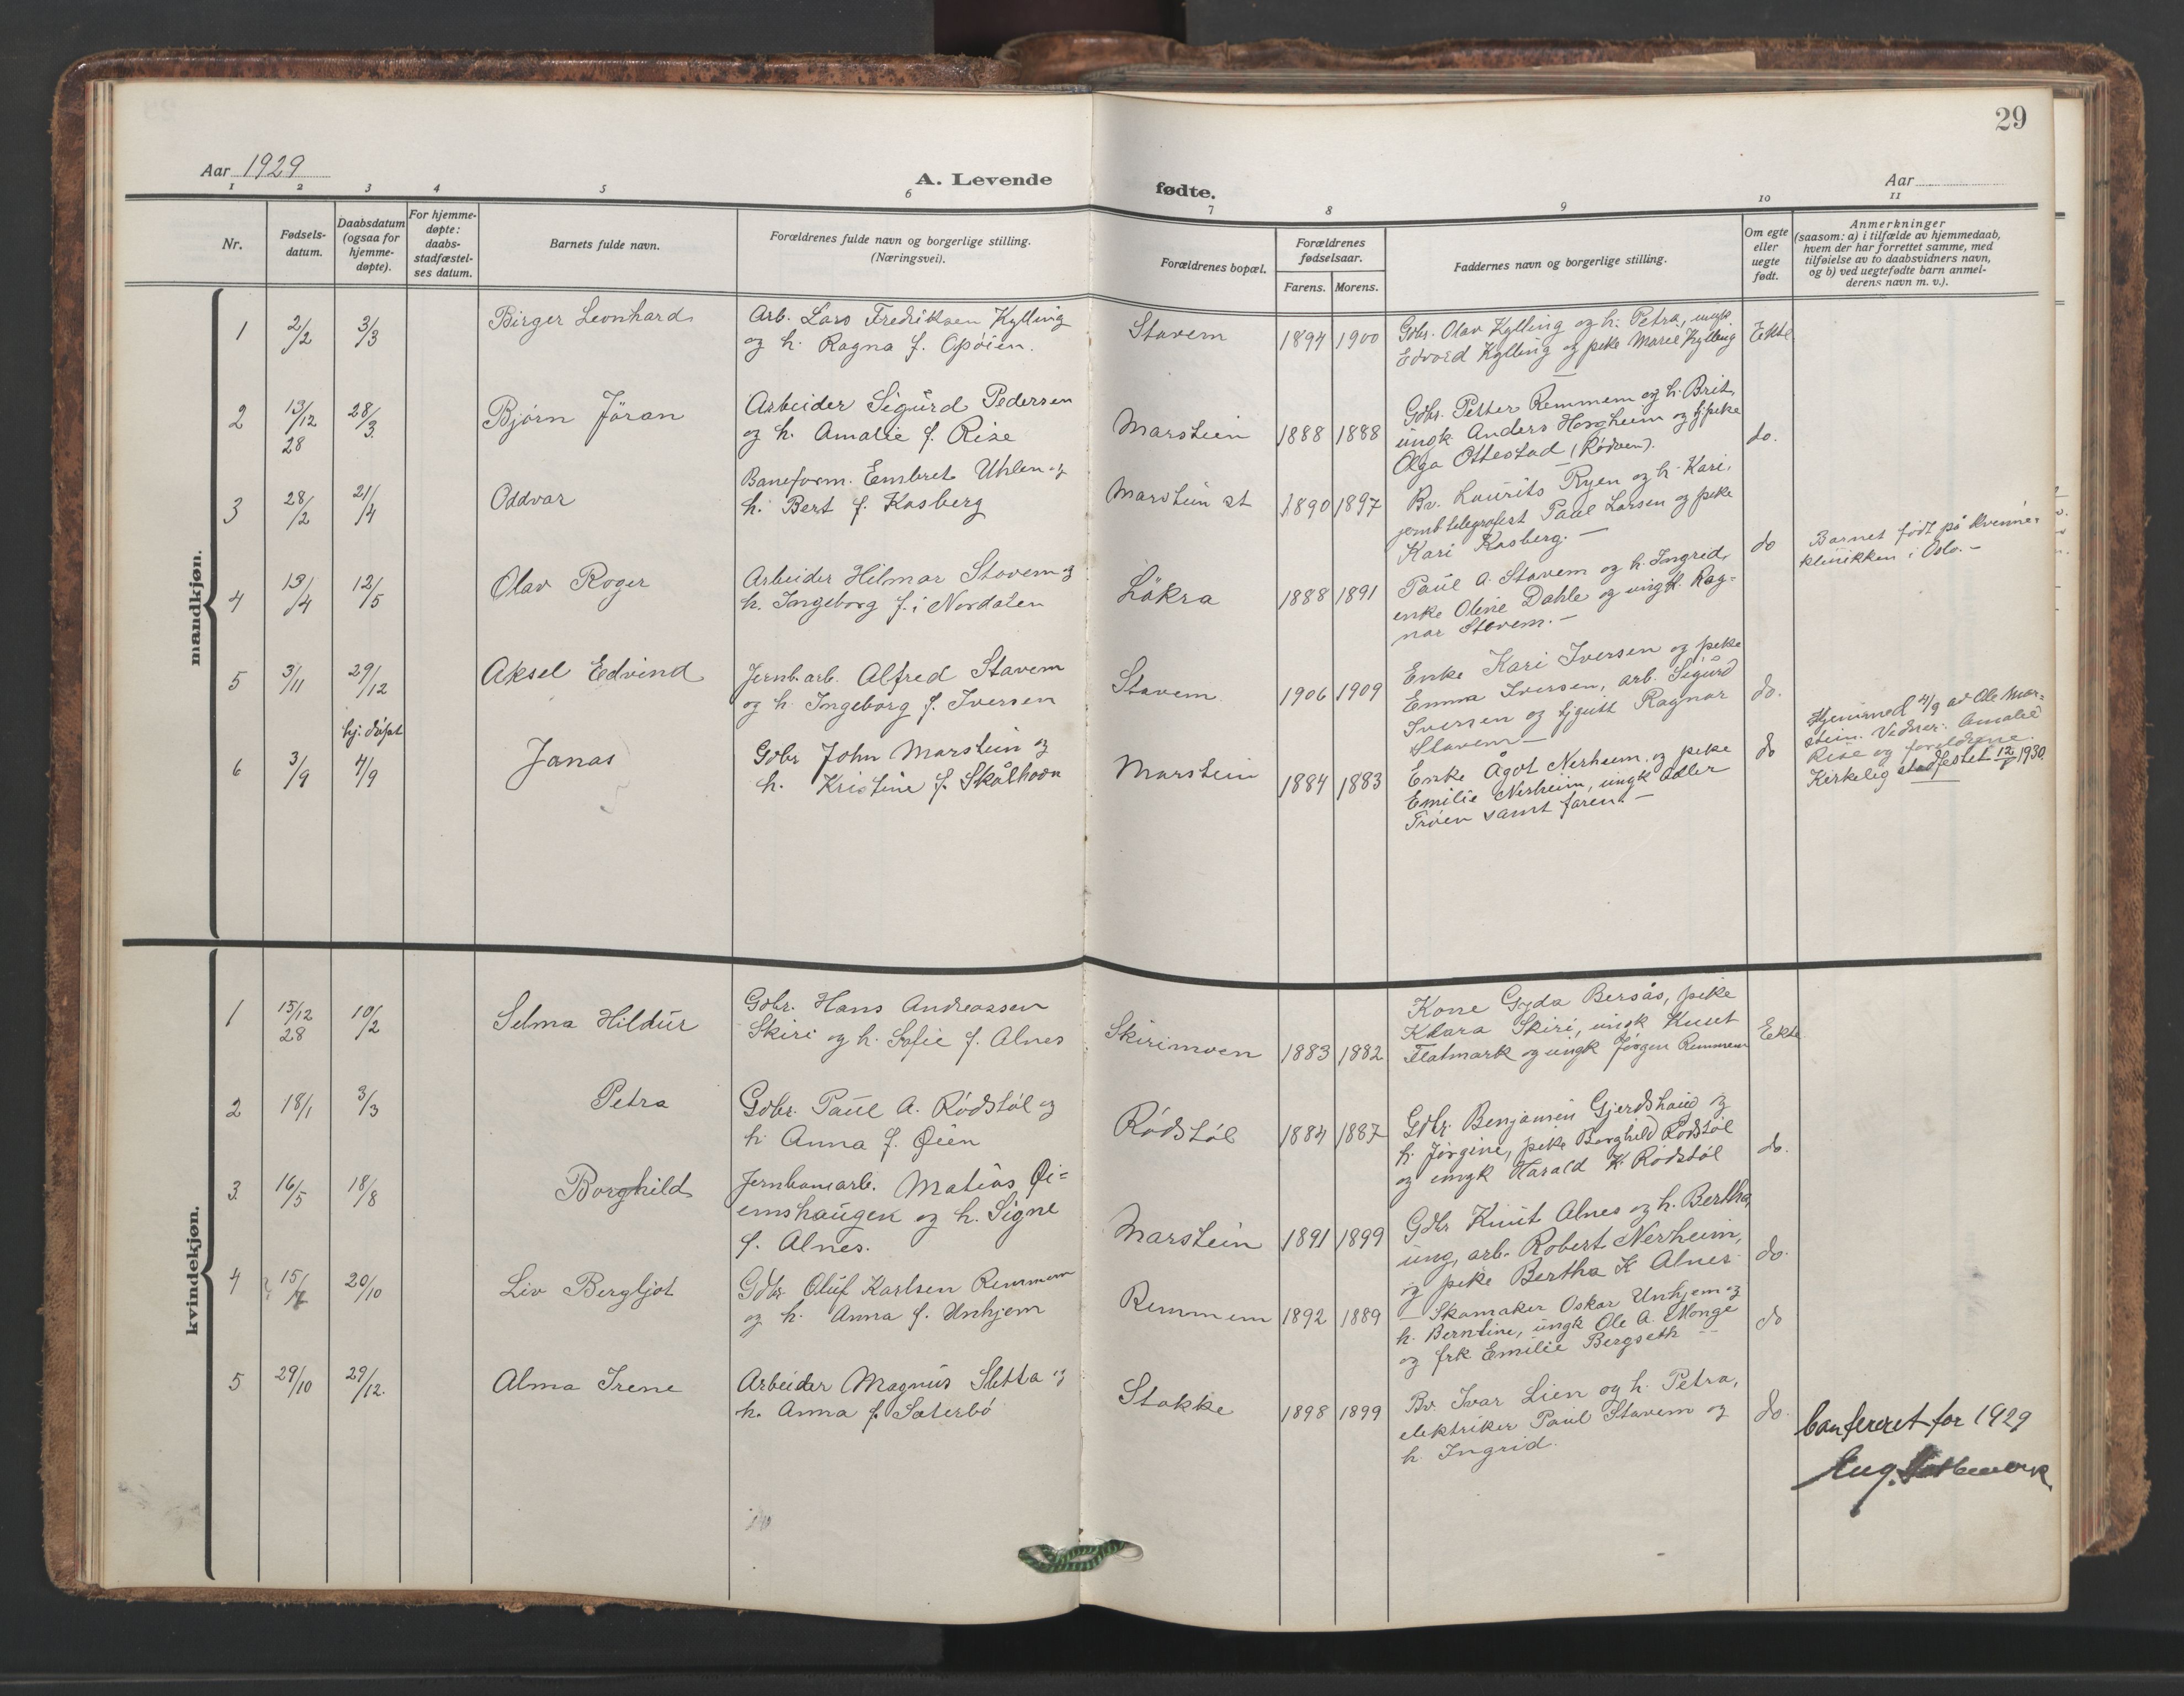 29
Aar 1929
A. Levende
fødte.
Aar
1 2 3 4 5 6 7 8 9 10 11
Nr.
Fødsels-
datum.
Daabsdatum
(ogsaa for
hjemme-
døpte).
For hjemme-
døpte:
daabs-
stadfæstel-
ses datum.
Barnets fulde navn.
Forældrenes fulde navn og borgerlige stilling.
(Næringsvei).
Forældrenes bopæl.
Forældrenes
fødselsaar.
Farens. Morens.
Faddernes navn og borgerlige stilling.
Om egte
eller
uegte
født.
Anmerkninger
(saasom: a) i tilfælde av hjemmedaab,
hvem der har forrettet samme, med
tilføielse av to daabsvidners navn,
og b) ved uegtefødte barn anmel-
derens navn m. v.).
mandkjøn.
1
2/2
3/3
Birger Leonhard
Arb. Lars Fredriksen Kylling
og h. Ragna f. Opöien.
Stavem
1894 1900
Gbr. Olav Kylling og h. Petra, ungk
Edvard Kylling og pike Marie Kylling
Ekte
2
13/12
28
28/3
Bjørn Jöran
Arbeider Sigurd Pedersen
og h. Amalie f. Rise
Marstein
1888 1888
Gbr. Petter Remmem og h. Brit,
ungk Anders Horgheim og tj.pike
Olga Ottestad (Rødven).
do.
3
28/2
21/4
Oddvar
Baneform. Embret Uhlen og
h. Bert f. Kasberg
Marstein st
1890 1897
Bv. Laurits Ryen og h. Kari,
jernb telegrafist Paul Larsen og pike
Kari Kasberg. —
do
Barnet født på Kvinne-
klinikken i Oslo. —
4
13/4
12/5
Olav Roger
Arbeider Hilmar Stavem og
h. Ingeborg f. i Nordalen
Lökra
1888 1891
Paul A. Stavem og h. Ingrid,
enke Oline Dahle og ungk. Rag-
nar Stavem. —
5
3/11
29/12
Aksel Edvind
Jernb.arb. Alfred Stavem
og h. Ingeborg f. Iversen
Stavem
1906 1909
Enke Kari Iversen og pike
Emma Iversen, arb. Sigurd
Iversen og tj.gutt Ragnar
Stavem —
do.
6
3/9
hj. döpt
4/9
Janas
Gbr John Marstein og
h. Kristine f. Skålhavn
Marstein
1884 1883
Enke Ågot Nerheim, og pike
Emilie Nerheim, ungk Adler
Tröen samt faren. —
do
Hjemmed 4/9 av Ole Mar-
stein. Vidner: Amalie
Rise og foreldrene.
Kirkelig stadfestet 12/ 1930
kvindekjøn.
1
15/12
28
10/2
Selma Hildur
Gbr. Hans Andreassen
Skiri og h. Sofie f. Alnes
Skirimoen
1883 1882
Kone Gyda Bersås, pike
Klara Skiri, ungk Knut
Flatmark og ungk Jörgen Remmem
Ekte
2
18/1
3/3
Petra
Gbr. Paul A. Rödstöl og
h. Anna f. Øien
Rödstöl
1884 1887
Gbr. Benjamin Gjerdshaug og
h. Jørgine, pike Borghild Rödstöl
og ungk Harald K. Rödstöl
do.
3.
16/5
18/8
Borghild
Jernbanearb. Matias Øi-
emshaugen og h. Signe
f. Alnes.
Marstein
1891 1899
Gbr Knut Alnes og h. Bertha,
ung. arb. Robert Nerheim,
og pike Bertha K. Alnes.
do.
4
15/
20/10
Liv Bergljot
Gbr Oluf Karlsen Remmem
og h. Anna f. Unhjem
Remmem
1892 1889
— Skomaker Oskar Unhjem og
h. Berntine, ungk Ole A. Monge
og frk Emilie Bergseth —
do
5
29/10
29/12.
Alma Irene
Arbeider Magnus Sletta og
h. Anna f. Sæterbö
Stokke
1898 1899
Bv. Ivar Lien og h. Petra,
elektriker Paul Stavem og
h. Ingrid.
do.
Confereret for 1929
Aug.